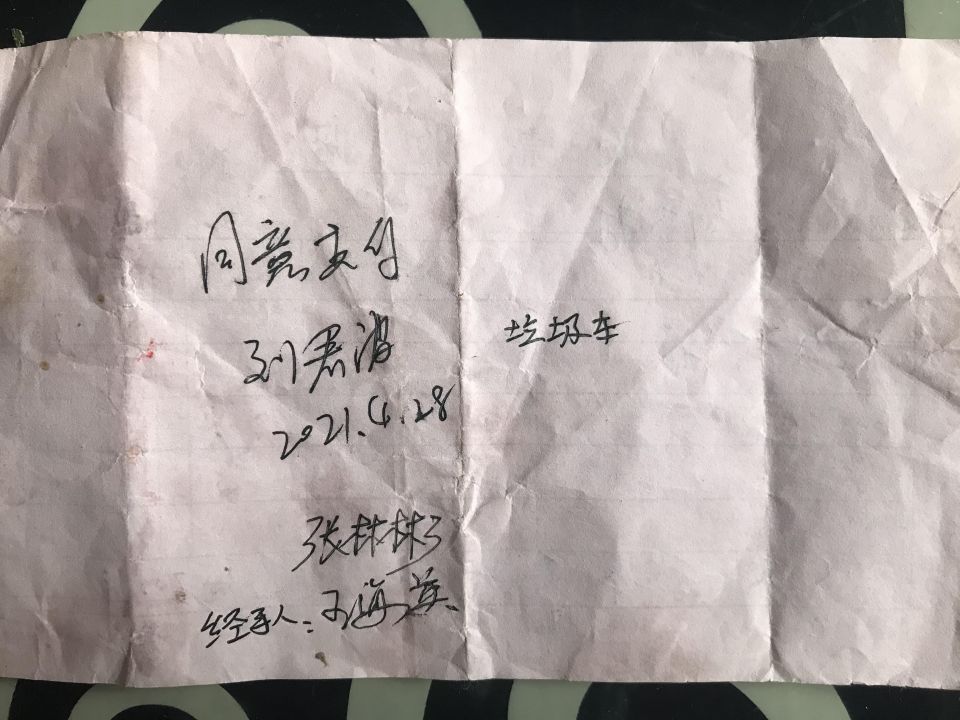 同意支付
刘君波
2021.4.28
垃圾车
张林彬
经手人:王海英